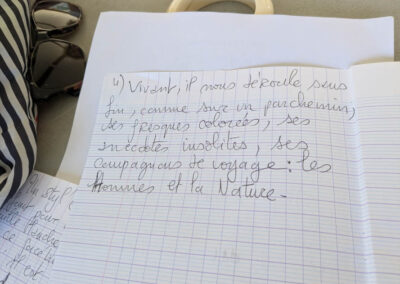 4) Vivant, il nous déroule sans
fin, comme sur un parchemin,
ses fresques colorées, ses
anecdotes insolites, ses
compagnons de voyage : les
Hommes et la Nature.
un style